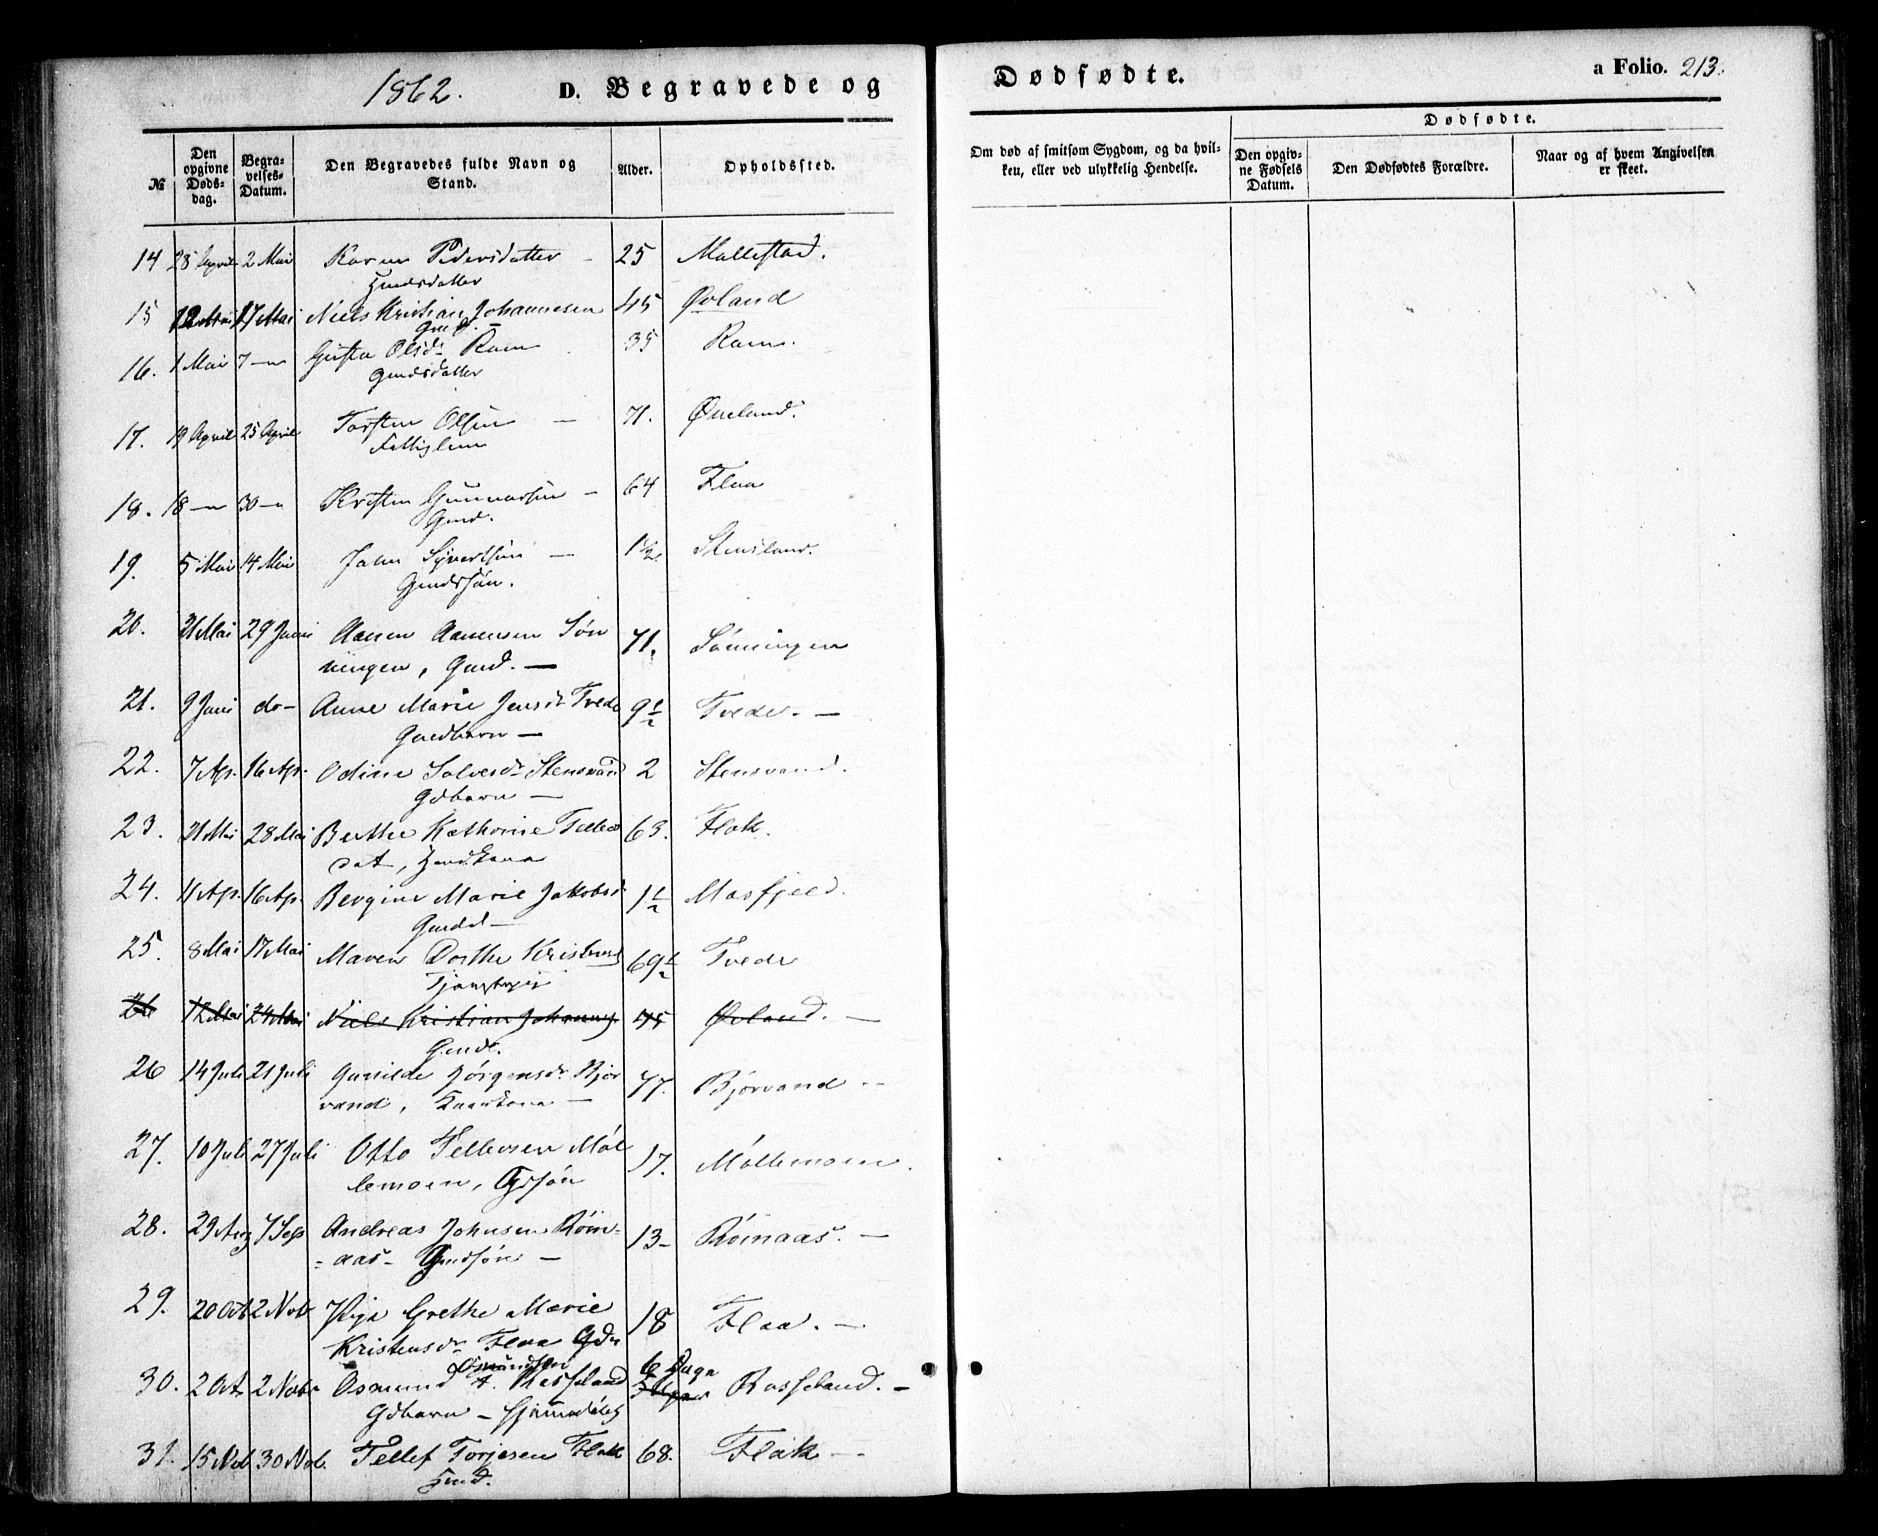 1862.
D. Begravede og
Dødfødte.
a Folio. 213.
№
Den opgivne Dødsdag.
Begravelses-Datum.
Den Begravedes fulde Navn og Stand.
Alder.
Opholdssted.
Om død af smitsom Sygdom, og da hvilken, eller ved ulykkelig Hendelse.
Dødfødte.
Den opgivne Fødsels Datum.
Den Dødfødtes Forældre.
Naar og af hvem Angivelsen er skeet.
14 28 April 2 Mai Karen Pedersdatter – 25 Mollestad.
15 12 Mai 17 Mai Niels Kristian Johannesen 45 Øvland
Gmd. –
16. 1 Mai 7 – Gusta Olsd. Ram 35 Ram.
Gmdsdatter
17. 19 April 25 April Torsten Olsen – 71. Øveland.
Fattiglem
18. 18 – 30 – Kristen Gunnarsen – 64 Flaa
Gmd.
19. 5 Mai 14 Mai John Syvertsen – 1½ Stensland.
Gmdssøn.
20. 21 Mai 29 Juni Aanen Aanensen Søn
ningen, Gmd. – 71. Sønningen
21. 9 Juni do – Anne Marie Jensd. Tvede 9½ Tvede. –
Gmdbarn –
22. 7 Ap. 16 Ap. Odine Salvesd. Stensvand 2 Stensvand.
Gdbarn –
23. 21 Mai 28 Mai Berthe Kathrine Tellefs 63. Flak.
dat,
24. 11 Ap. 16 Ap. Bergine Marie Jakobsd. 1½ Masfjeld.
25. 8 Mai 17 Mai Maren Dorthe Kristensd 69½ Tvede
26 12 Mai 24 Mai Niels Kristian Johannes. 45 Øvland. –
Gmd.
26 14 Juli 21 Juli Gunilde Jørgensd. Bjor
vand, Kaarkone – 77. Bjorvand –
27. 10 Juli 27 Juli Otto Tellevsen Møl
lemoen, Gdsøn 17. Møllemoen.
28. 29 Aug 7 Sep Andreas Johnsen Røin-
-aas- Gmdsøn – 13 – Røinaas. –
29. 20 Oct 2 Nob Pige Grethe Marie
Kristensd. Flaa Gdr 18 Flaa. –
Osmundsen 6 Dage
30. 2 Oct 2 Nob. Osmund Rosseland Rosseland. –
Gdbarn – hjemmedøbt
31. 15 Nob 30 Nob. Tellef Torjesen Flak 68. Flak –